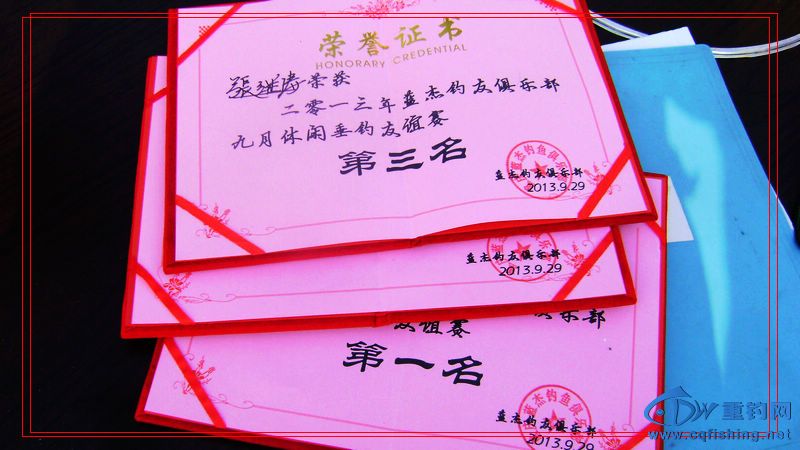 荣誉证书
HONORARY CREDENTIAL
荣获
二零一三年蓝杰钓友俱乐部
九月休闲垂钓友谊赛
第三名
蓝杰钓友俱乐部
2013.9.29
蓝杰钓友俱乐部
2013.9.29
友谊赛
俱乐部
第一名
蓝杰钓友俱乐部
2013.9.29
重钓网
www.cqfishing.net